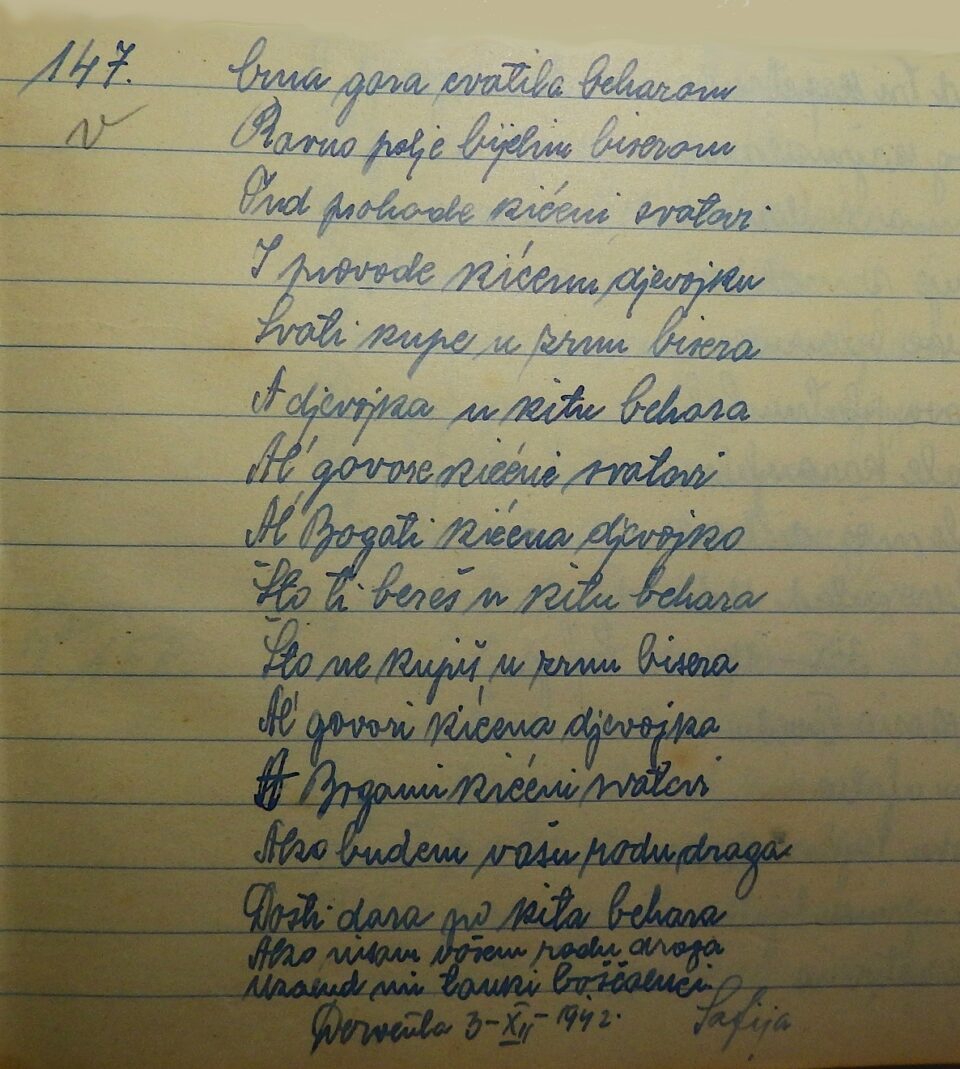 147. Crna gora cvatila beharom
v Ravno polje bijelim biserom
Tud prohode kićeni svatovi
I provode kićenu djevojku
Svati kupe u zrnu bisera
A djevojka u kitu behara
Al' govore kićeni svatovi
Al' Bogati kićena djevojko
Što ti bereš u kitu behara
Što ne kupiš u zrnu bisera
Al' govori kićena djevojka
A Bogami kićeni svatovi
Ako budem vašu rodu draga
Dosti dara po kita behara
Ako nisam vašem rodu draga
mi tanki boščaluci
Derventa 3-XII-1942. Safija